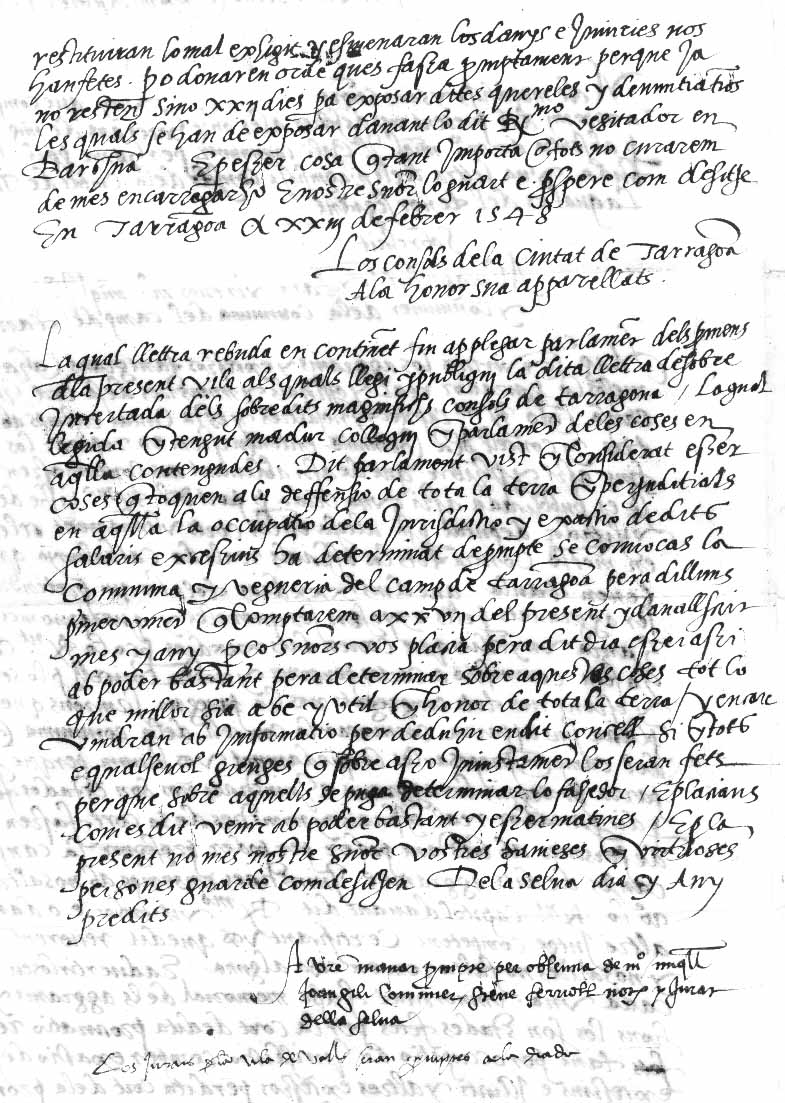 restituiran lo mal exhigit y esmenaran los danys e injuries nos
han fetes. po donaren orde ques fassa promptament perque ja
no resten sino xxij dies pa exposar dites quereles y denuntiations
les quals se han de exposar davant lo dit Rmo vesitador en
Barna. E per esser cosa que tant importa a tots no curarem
de mes encarregarho E nostre Snor lo guart e prospere com desitje
En Tarragona A xxiij de febrer 1548
Los consols de la Ciutat de Tarragona
A la honor sua apparellats.
La qual lletra rebuda en continet fiu applegar parlament dels promens
de la present vila als quals llegi y publiqui la dita lletra desobre
insertada dels sobredits magnifichs consols de tarragona / La qual
legida y tengut madur colloqui y parlament de les coses en
aqlla contengudes. Dit parlament vist y considerat esser
coses que toquen a la deffensio de tota la terra y perjuditials
en aqlla la occupatio de la Jurisdictio y exactio de dits
salaris excessius ha determinat de prompte se convocas la
Comuna y vegueria del camp de tarragona pera dilluns
primer vinent que comptarem a xxvij del present y davall scrit
mes y any perço Snors vos placia pera dit dia esser assi
ab poder bastant pera determinar sobre aquestes coses tot lo
que millor sia a be y util y honor de tota la terra / y encare
vindran ab informatio per deduhir en dit Concell si tots
e qualsevol greuges que sobre asso injustament los seran fets
perque sobre aquells se puga determinar lo fahedor / E placiaus
com es dit venir ab poder bastant y esser matines / E per la
present no mes nostre Snor vostres sameses y virtuoses
persones guarde com desitjen De la selva dia y Any
predits
A vre manar prompte per absentia de mo miqll
Joan gili Comuner, ferroll notr y jurat
de la selva
Los Jurats de la vila de Valls seran promptes a la diada